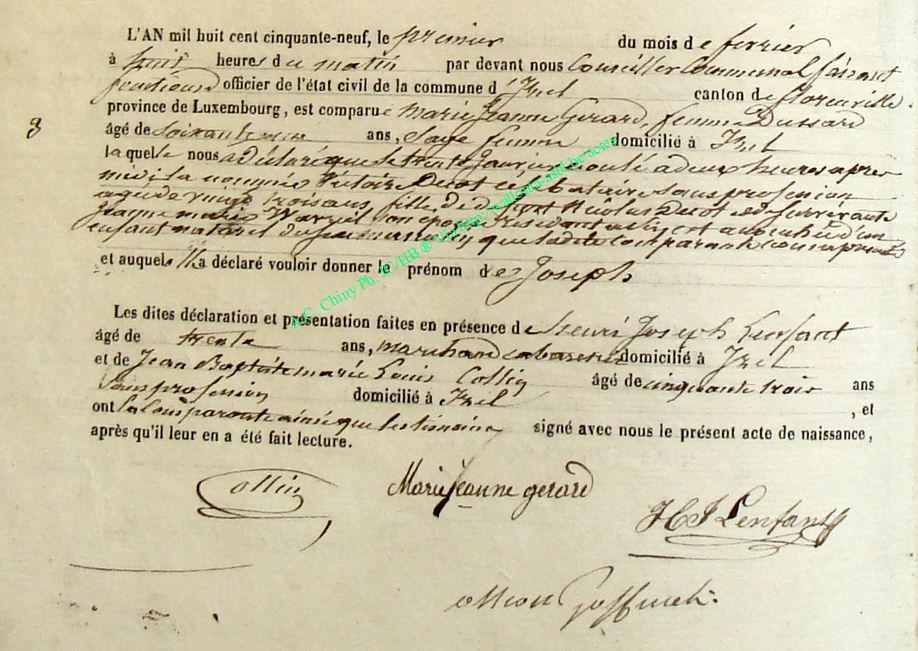 L'AN mil huit cent cinquante-neuf, le premier du mois de fevrier
à huit heures du matin par devant nous Conseiller Communal faisant
fonctions officier de l'état civil de la commune d'Izel canton de florenville
province de Luxembourg, est comparue Marie Jeanne Gerard femme Dussard
3
âgé de Soixante ans, Sage femme domicilié à Izel
laquelle nous a déclaré que le trente Janvier, écoulé a deux heures apres
midi la nommée Victoire Decot celibataire sans profession
agée de vingt trois ans, fille de Nicolas Decot et
Jeanne marie son épouse est accouchée d'un
enfant naturel du sexe masculin que ladite Comparante
et auquel Il a déclaré vouloir donner le prénom de Joseph
A.C. Chiny Ph.
Les dites déclaration et présentation faites en présence de henri Joseph Lenfant
âgé de trente ans, marchand cabaretier domicilié à Izel
et de Jean Baptiste marie Louis Collin âgé de cinquante trois ans
Sans profession domicilié à Izel , et
ont la Comparante ainsi que les témoins signé avec nous le présent acte de naissance,
après qu'il leur en a été fait lecture.
Collin
Marie jeanne gerard
H J Lenfant